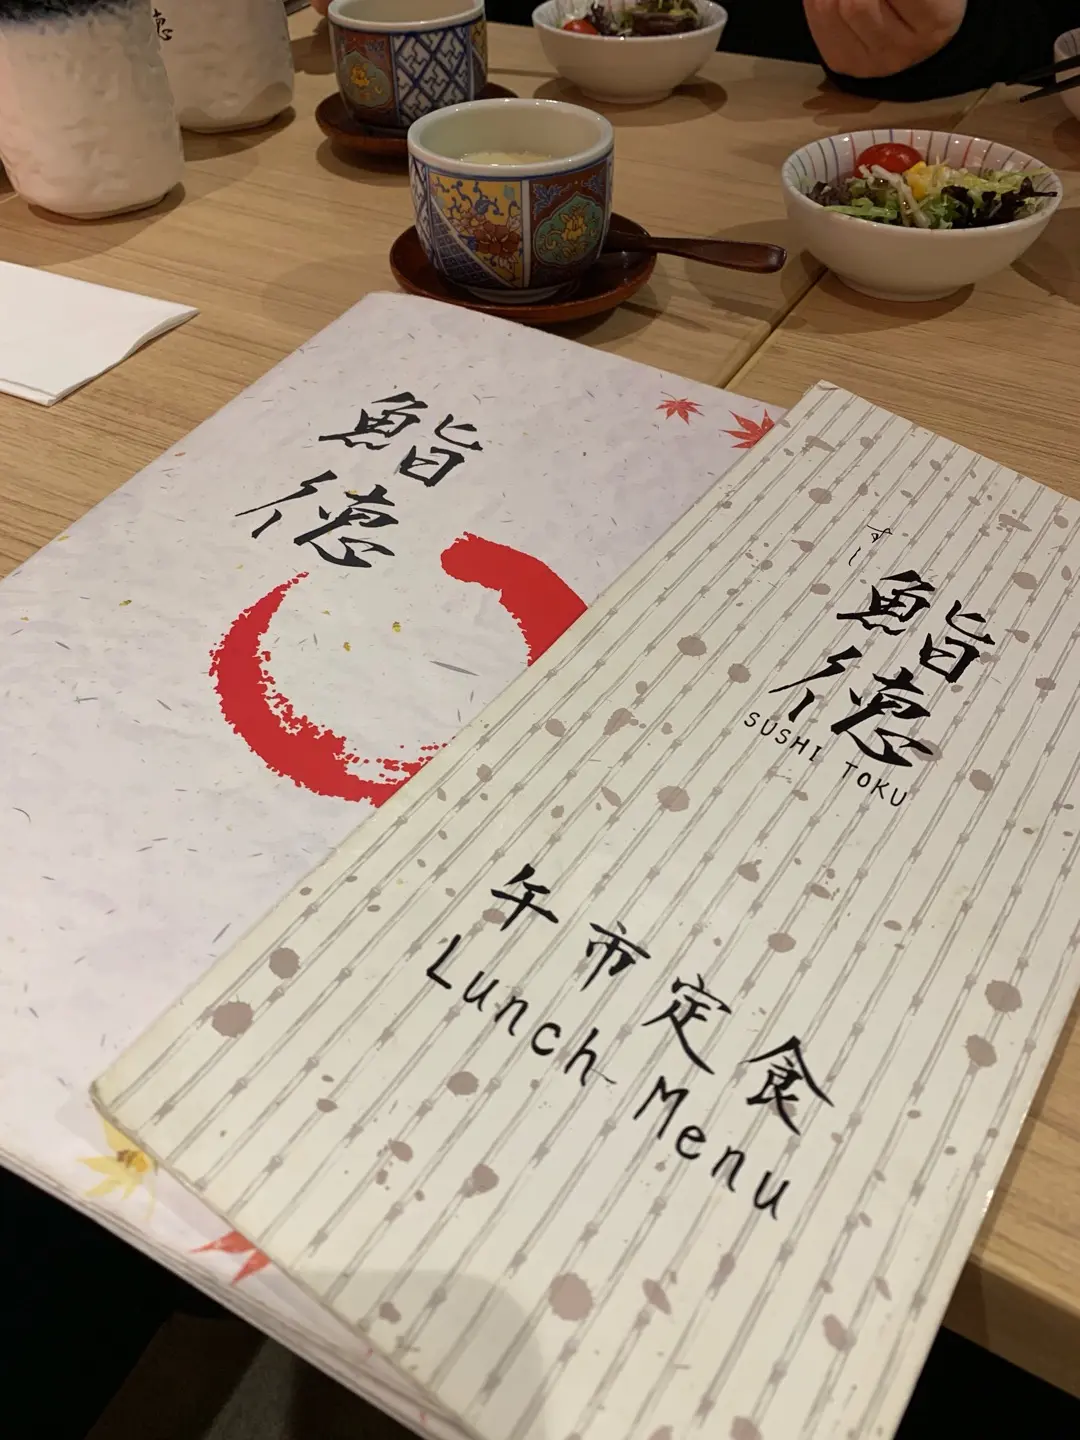 徳
鮨
徳
すし
鮨
徳
SUSHI TOKU
午市定食
Lunch Menu